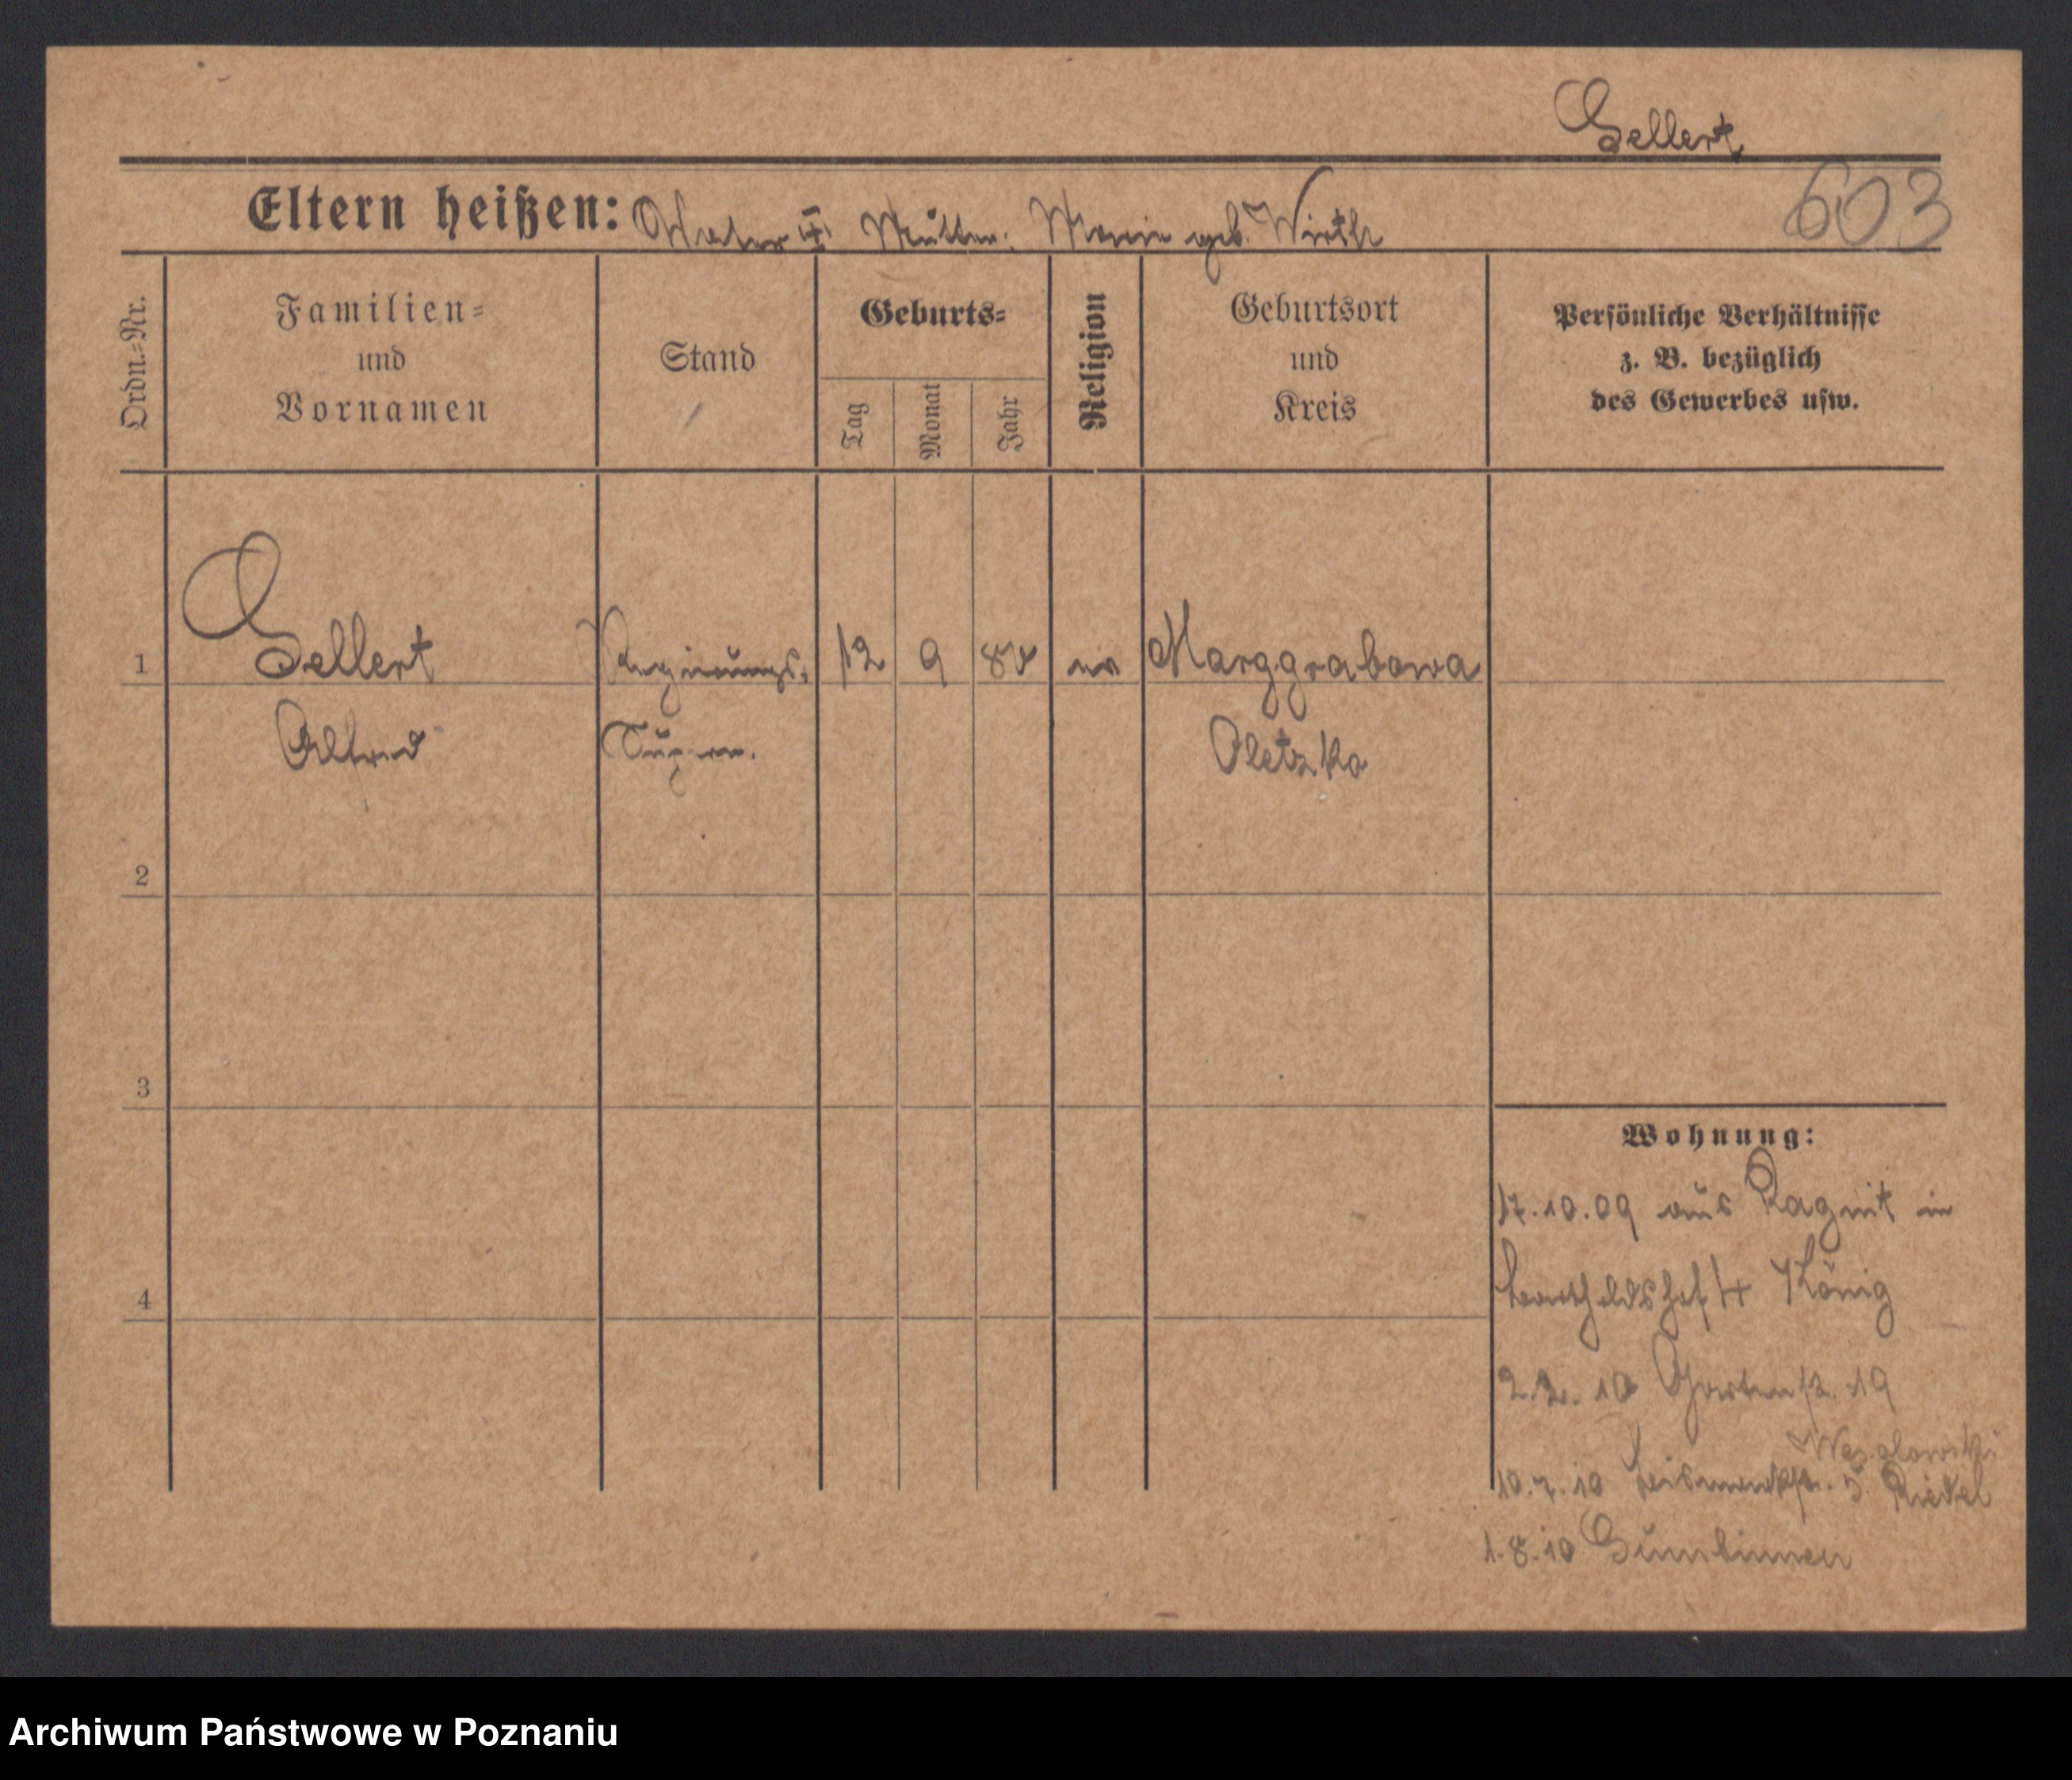 Gellert
603
Eltern heißen: Vater ‡ Mutter: Marie geb. Wirth
Ordn.=Nr.
Familien=
und
Vornamen
Stand
Geburts=
Tag
Monat
Jahr
Religion
Geburtsort
und
Kreis
Persönliche Verhältnisse
z. B. bezüglich
des Gewerbes usw.
1 Gellert Regierungs- 12 9 ev Marggrabowa
Alfred Super. Oletzko
2
3
4
Wohnung:
17.10.09 aus Ragnit in
4 König
2.2.10 Gartenstr. 19
10.7.10 Bismarckstr. 5 Riedel
1.8.10 Gumbinnen
Archiwum Państwowe w Poznaniu